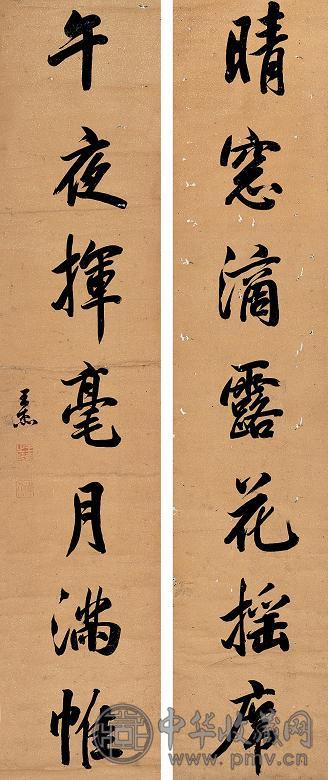 晴窓滴露花摇席
午夜揮毫月满帷
王杰
中华收藏网
www.pmv.cn